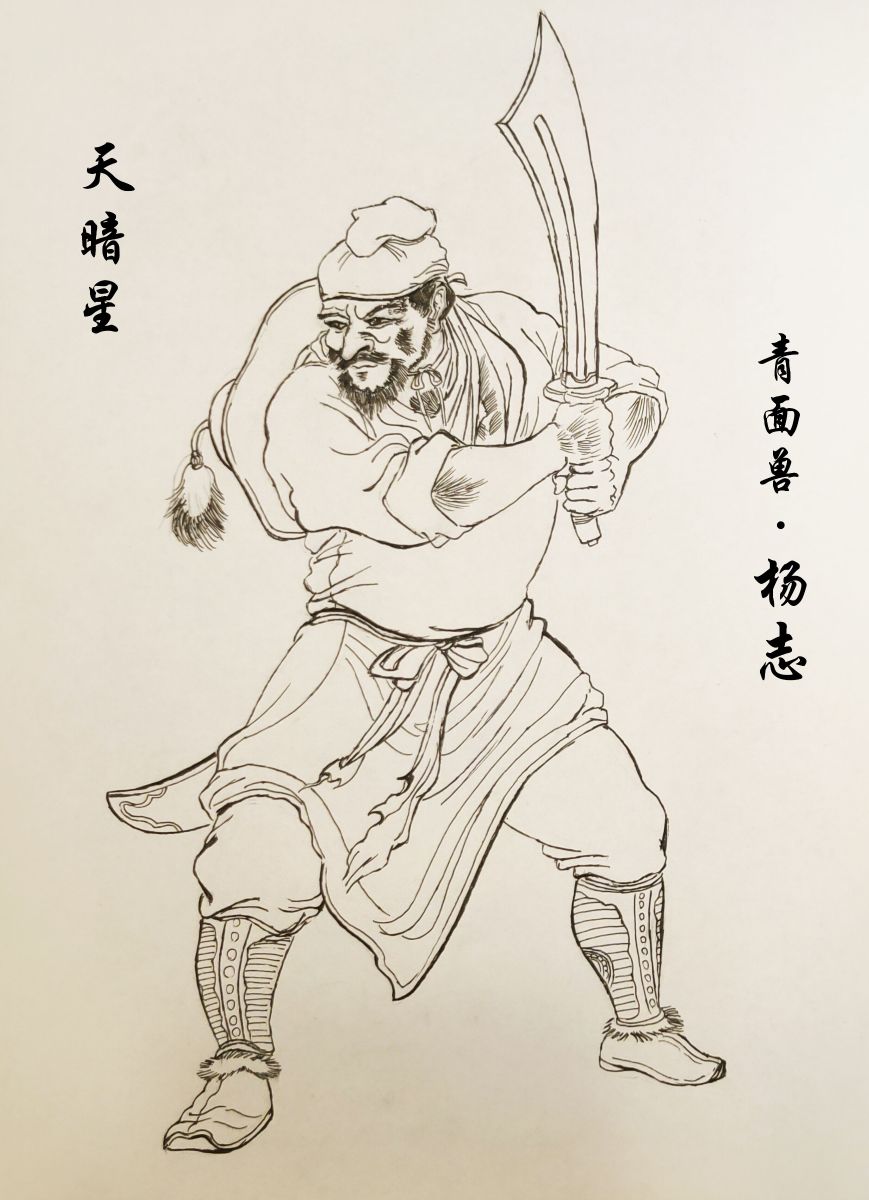 天暗星
青面兽·杨志